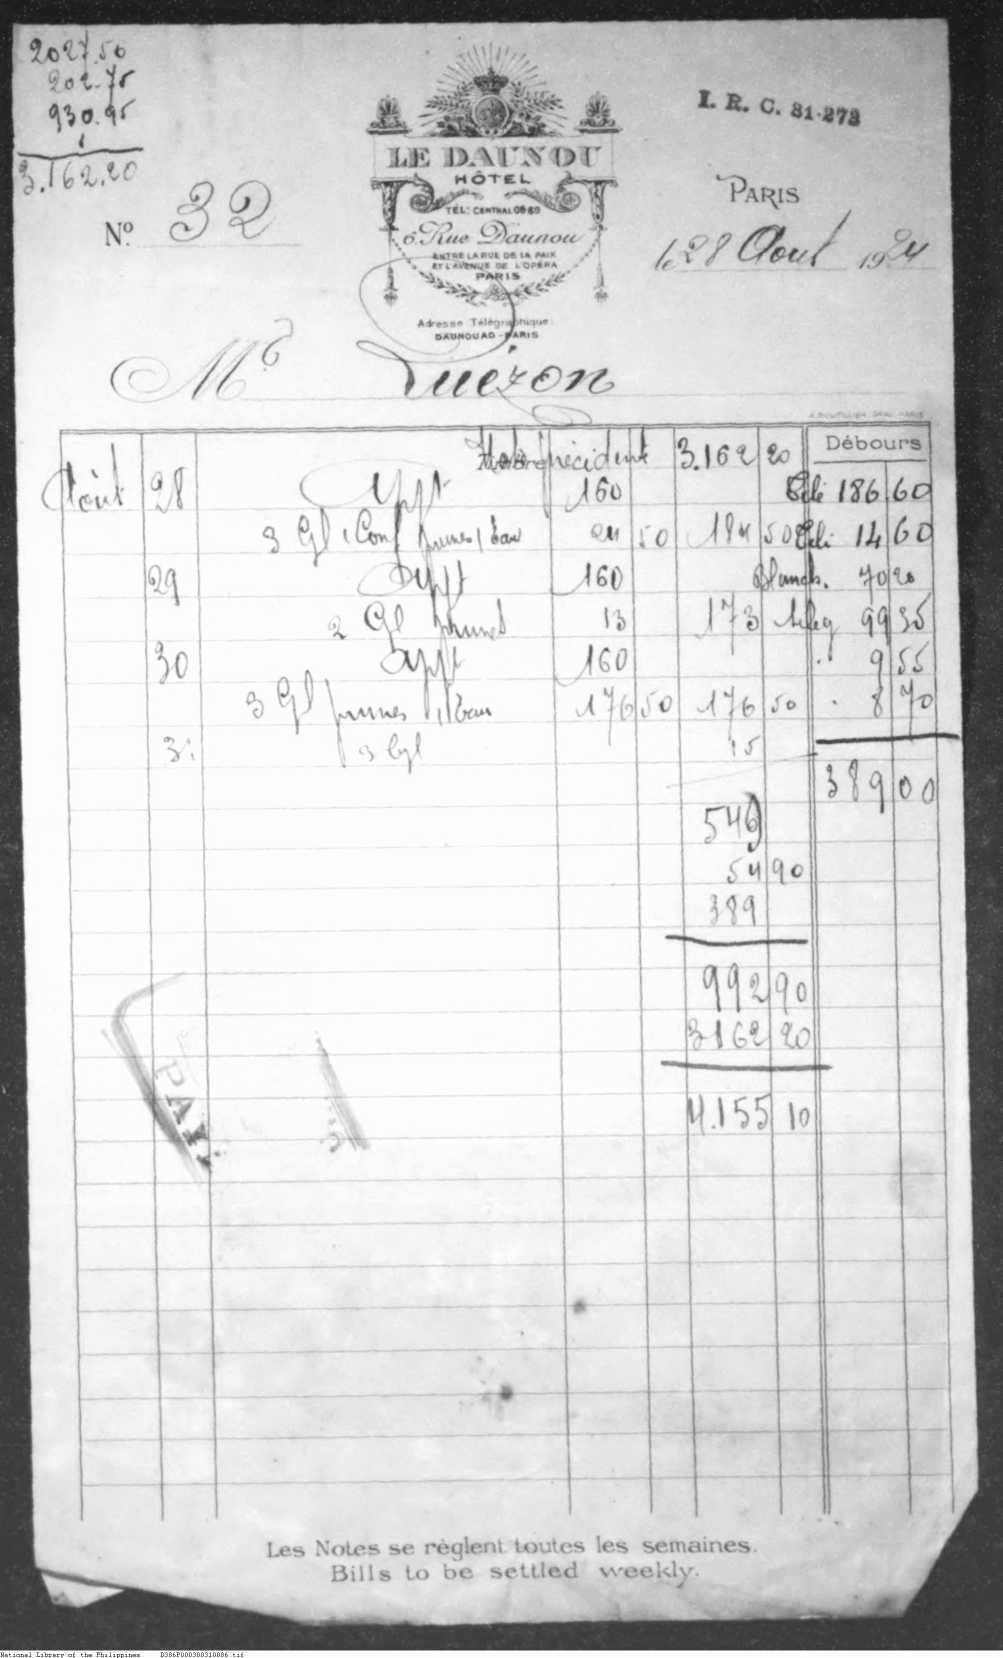 2027.50
202.75
930.95
3.162.20
I. R. C. 31·273
LE DAUNOU
HÔTEL
TÉL: CENTRAL 06-89
6, Rue Daunou
ENTRE LA RUE DE LA PAIX
ET L'AVENUE DE L'OPÉRA
PARIS
Adresse Télégraphique:
DAUNOUAD-PARIS
N° 32
PARIS
le 28 Aout 1924
Mr Quézon
Débours
précédent 3.162 20
Août 28 Appt 160 Télé 186 60
3 Gl 1 Conf prunes 1 Eau 24 50 184 50 Télé 14 60
29 Appt 160 Blanch. 70 20
2 Gl prunes 13 173 teleg 99 35
30 Appt 160 " 9 55
3 Gl prunes 1 Eau 176 50 176 50 " 8 70
3 15
389 00
549
54 90
389
992 90
3162 20
4.155 10
PAY
Les Notes se règlent toutes les semaines.
Bills to be settled weekly.
National Library of the Philippines D386P000300310086.tif